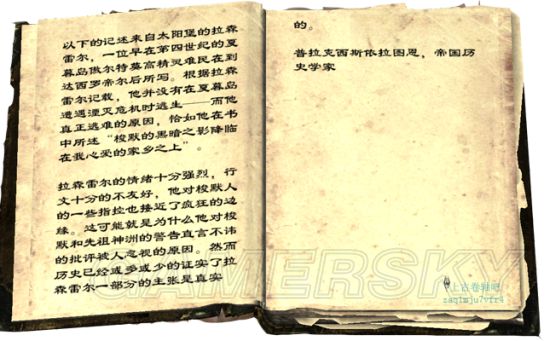 以下的记述来自太阳堡的拉森
雷尔，一位早在第四世纪的夏
暮岛傲尔特莫高精灵难民在到
达西罗帝尔后所写。根据拉森
雷尔记载，他并没有在夏暮岛
遭遇湮灭危机时逃生——而他
真正逃难的原因，恰如他在书
中所述“梭默的黑暗之影降临
在我心爱的家乡之上”。
拉森雷尔的情绪十分强烈，行
文十分的不友好，他对梭默人
的一些指控也接近了疯狂的边
缘。这可能就是为什么他对梭
默和先祖神洲的警告直言不讳
的批评被人忽视的原因。然而
历史已经或多或少的证实了拉
森雷尔一部分的主张是真实
的。
普拉克西斯依拉图恩，帝国历
史学家
GAMERSKY
上古卷轴吧
zaq1mju7vfr4